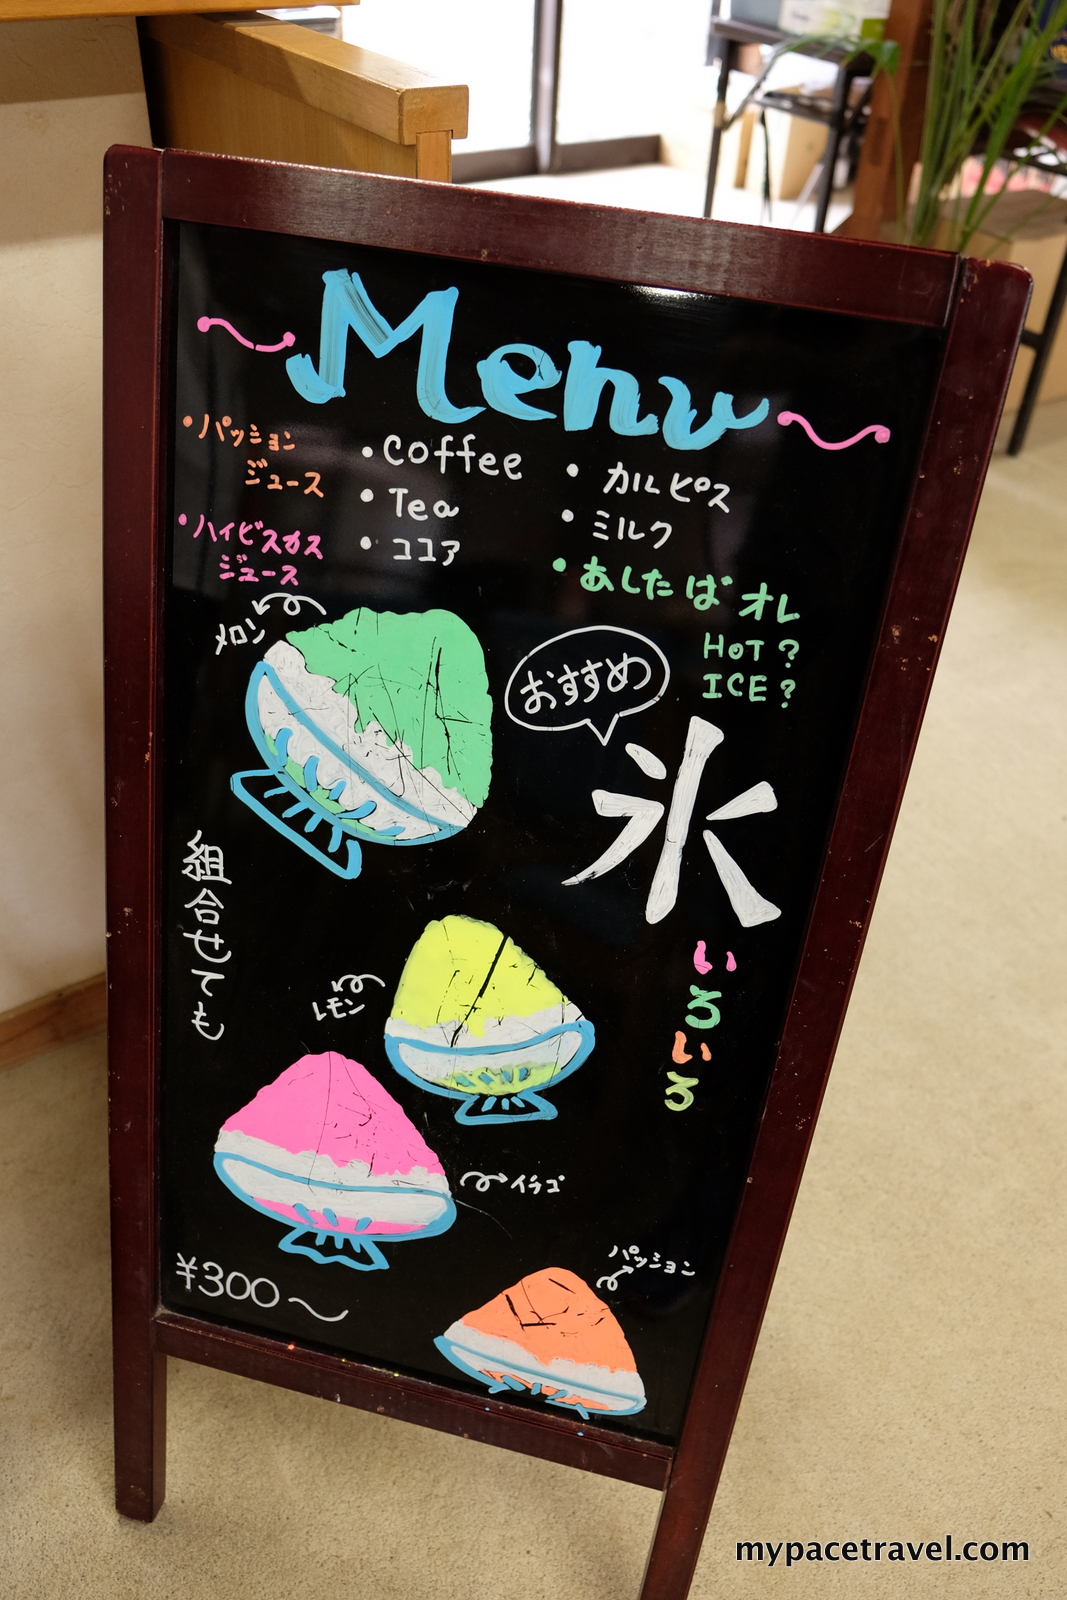 Menu
・パッション
ジュース
・ハイビスカス
ジュース
・Coffee
・Tea
・ココア
・カルピス
・ミルク
・あしたば オレ
HOT?
ICE?
メロン
おすすめ
氷
いろいろ
組合せても
レモン
イチゴ
パッション
¥300〜
mypacetravel.com